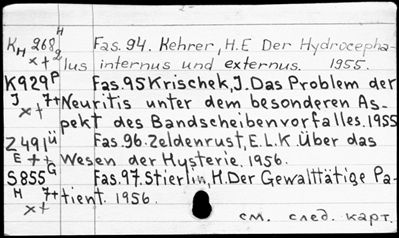 K H 268 H Fas. 94. Kehrer, H.E Der Hydrocepha-
x+ 2 lus internus und externus. 1955.
K929 P Fas. 95 Krischek, J. Das Problem der
J 7+ Neuritis unter dem besonderen As-
x+ pekt des Bandscheibenvorfalles. 1955
Z491 ü Fas. 96. Zeldenrust, E.L.K. Über das
E ++ Wesen der Hysterie. 1956.
S855 G Fas. 97. Stierlin, H. Der Gewalttätige Pa-
H 7+ tient. 1956.
x+ см. след. карт.